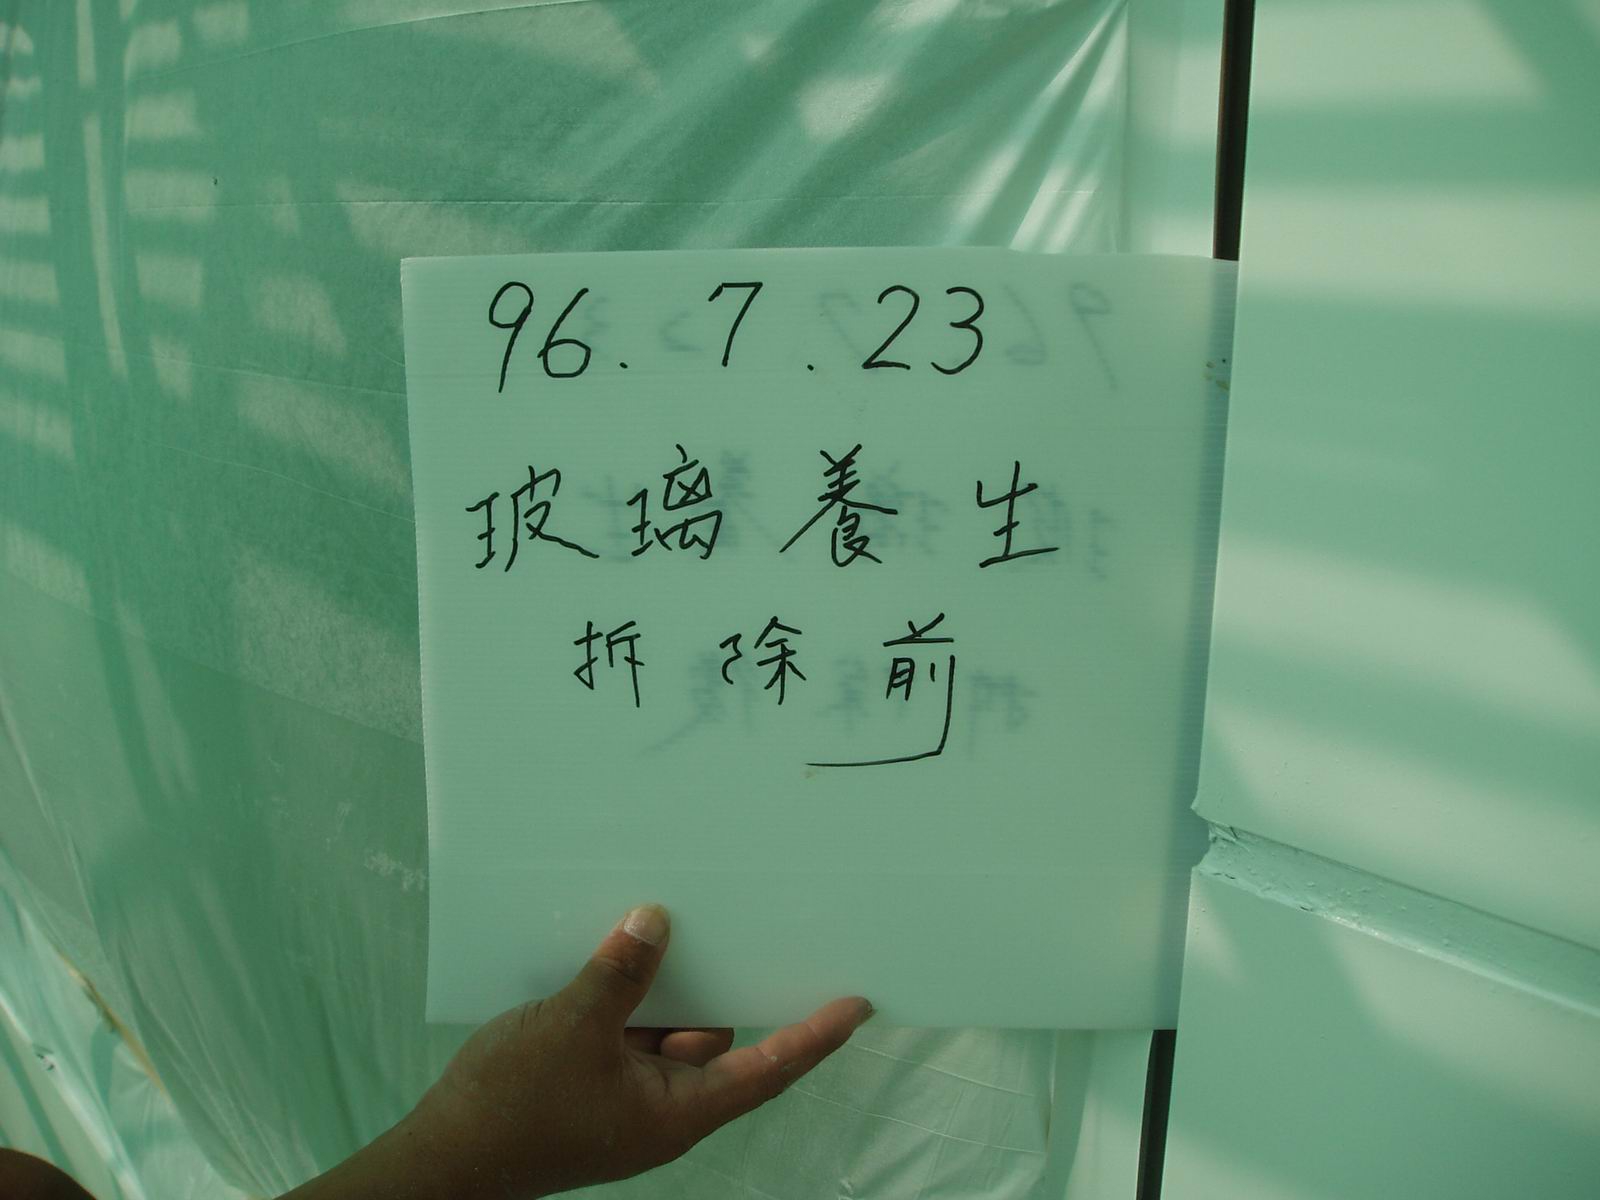 96. 7. 23
玻璃養生
拆除前